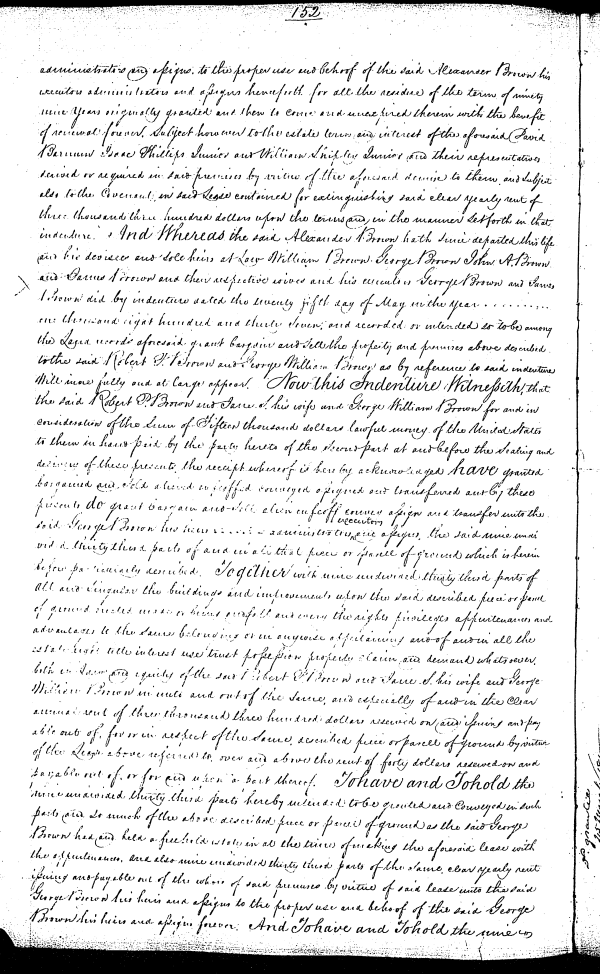 152
administrators and assigns, to the proper use and behoof of the said Alexander Brown his
executors administrators and assigns henceforth for all the residue of the term of ninety
nine years originally granted and then to come and unexpired therein with the benefit
of renewal forever, Subject however to the estate term and interest of the aforesaid David
Barnum Isaac Phillips Junior and William Shipley Junior and their representatives
derived or acquired in said premises by virtue of the aforesaid demise to them, and subject
also to the Covenant in said Lease contained for extinguishing said clear yearly rent of
three thousand three hundred dollars upon the terms and in the manner set forth in that
indenture. And Whereas the said Alexander Brown hath since departed this life
and his devisees and sole heirs at Law William Brown George Brown John A. Brown
and James Brown and their respective wives and his executors George Brown and James
Brown did by indenture dated the twenty fifth day of May in the year ..........
one thousand eight hundred and thirty seven, and recorded or intended so to be among
the Land records aforesaid, grant bargain and sell the property and premises above described
to the said Robert P. Brown and George William Brown as by reference to said indenture
will more fully and at large appear. Now this Indenture Witnesseth, that
the said Robert P. Brown and Jane S. his wife and George William Brown for and in
consideration of the Sum of Fifteen thousand dollars lawful money of the United States
to them in hand paid by the party hereto of the second part at and before the sealing and
delivery of these presents, the receipt whereof is hereby acknowledged have granted
bargained and sold aliened enfeoffed conveyed assigned and transferred and by these
presents do grant bargain and sell alien enfeoff convey assign and transfer unto the
executors
said George Brown his heirs administrators and assigns, the said nine undi
vided thirty third parts of and in all that piece or parcel of ground which is herein
before particularly described. Together with nine undivided thirty third parts of
all and singular the buildings and improvements upon the said described piece or parcel
of ground made or being and all and every the rights privileges appurtenances and
advantages to the same belonging or in anywise appertaining and of and in all the
estate right title interest use trust possession property claim and demand whatsoever,
both in Law and equity of the said Robert P. Brown and Jane S. his wife and George
William Brown in unto and out of the same, and especially of and in the clear
annual rent of three thousand three hundred dollars reserved on and issuing and pay
able out of, for or in respect of the same, described piece or parcel of ground by virtue
of the Lease above referred to, over and above the rent of forty dollars reserved on and
payable out of, or for and upon a part thereof. To have and To hold the
nine undivided thirty third parts hereby intended to be granted and conveyed in such
parts and so much of the above described piece or parcel of ground as the said George
Brown had and held a freehold estate in at the time of making the aforesaid lease with
the appurtenances, and also nine undivided thirty third parts of the same, clear yearly rent
issuing and payable out of the whole of said premises by virtue of said lease unto the said
George Brown his heirs and assigns to the proper use and behoof of the said George
Brown his heirs and assigns forever. And To have and To hold the nine